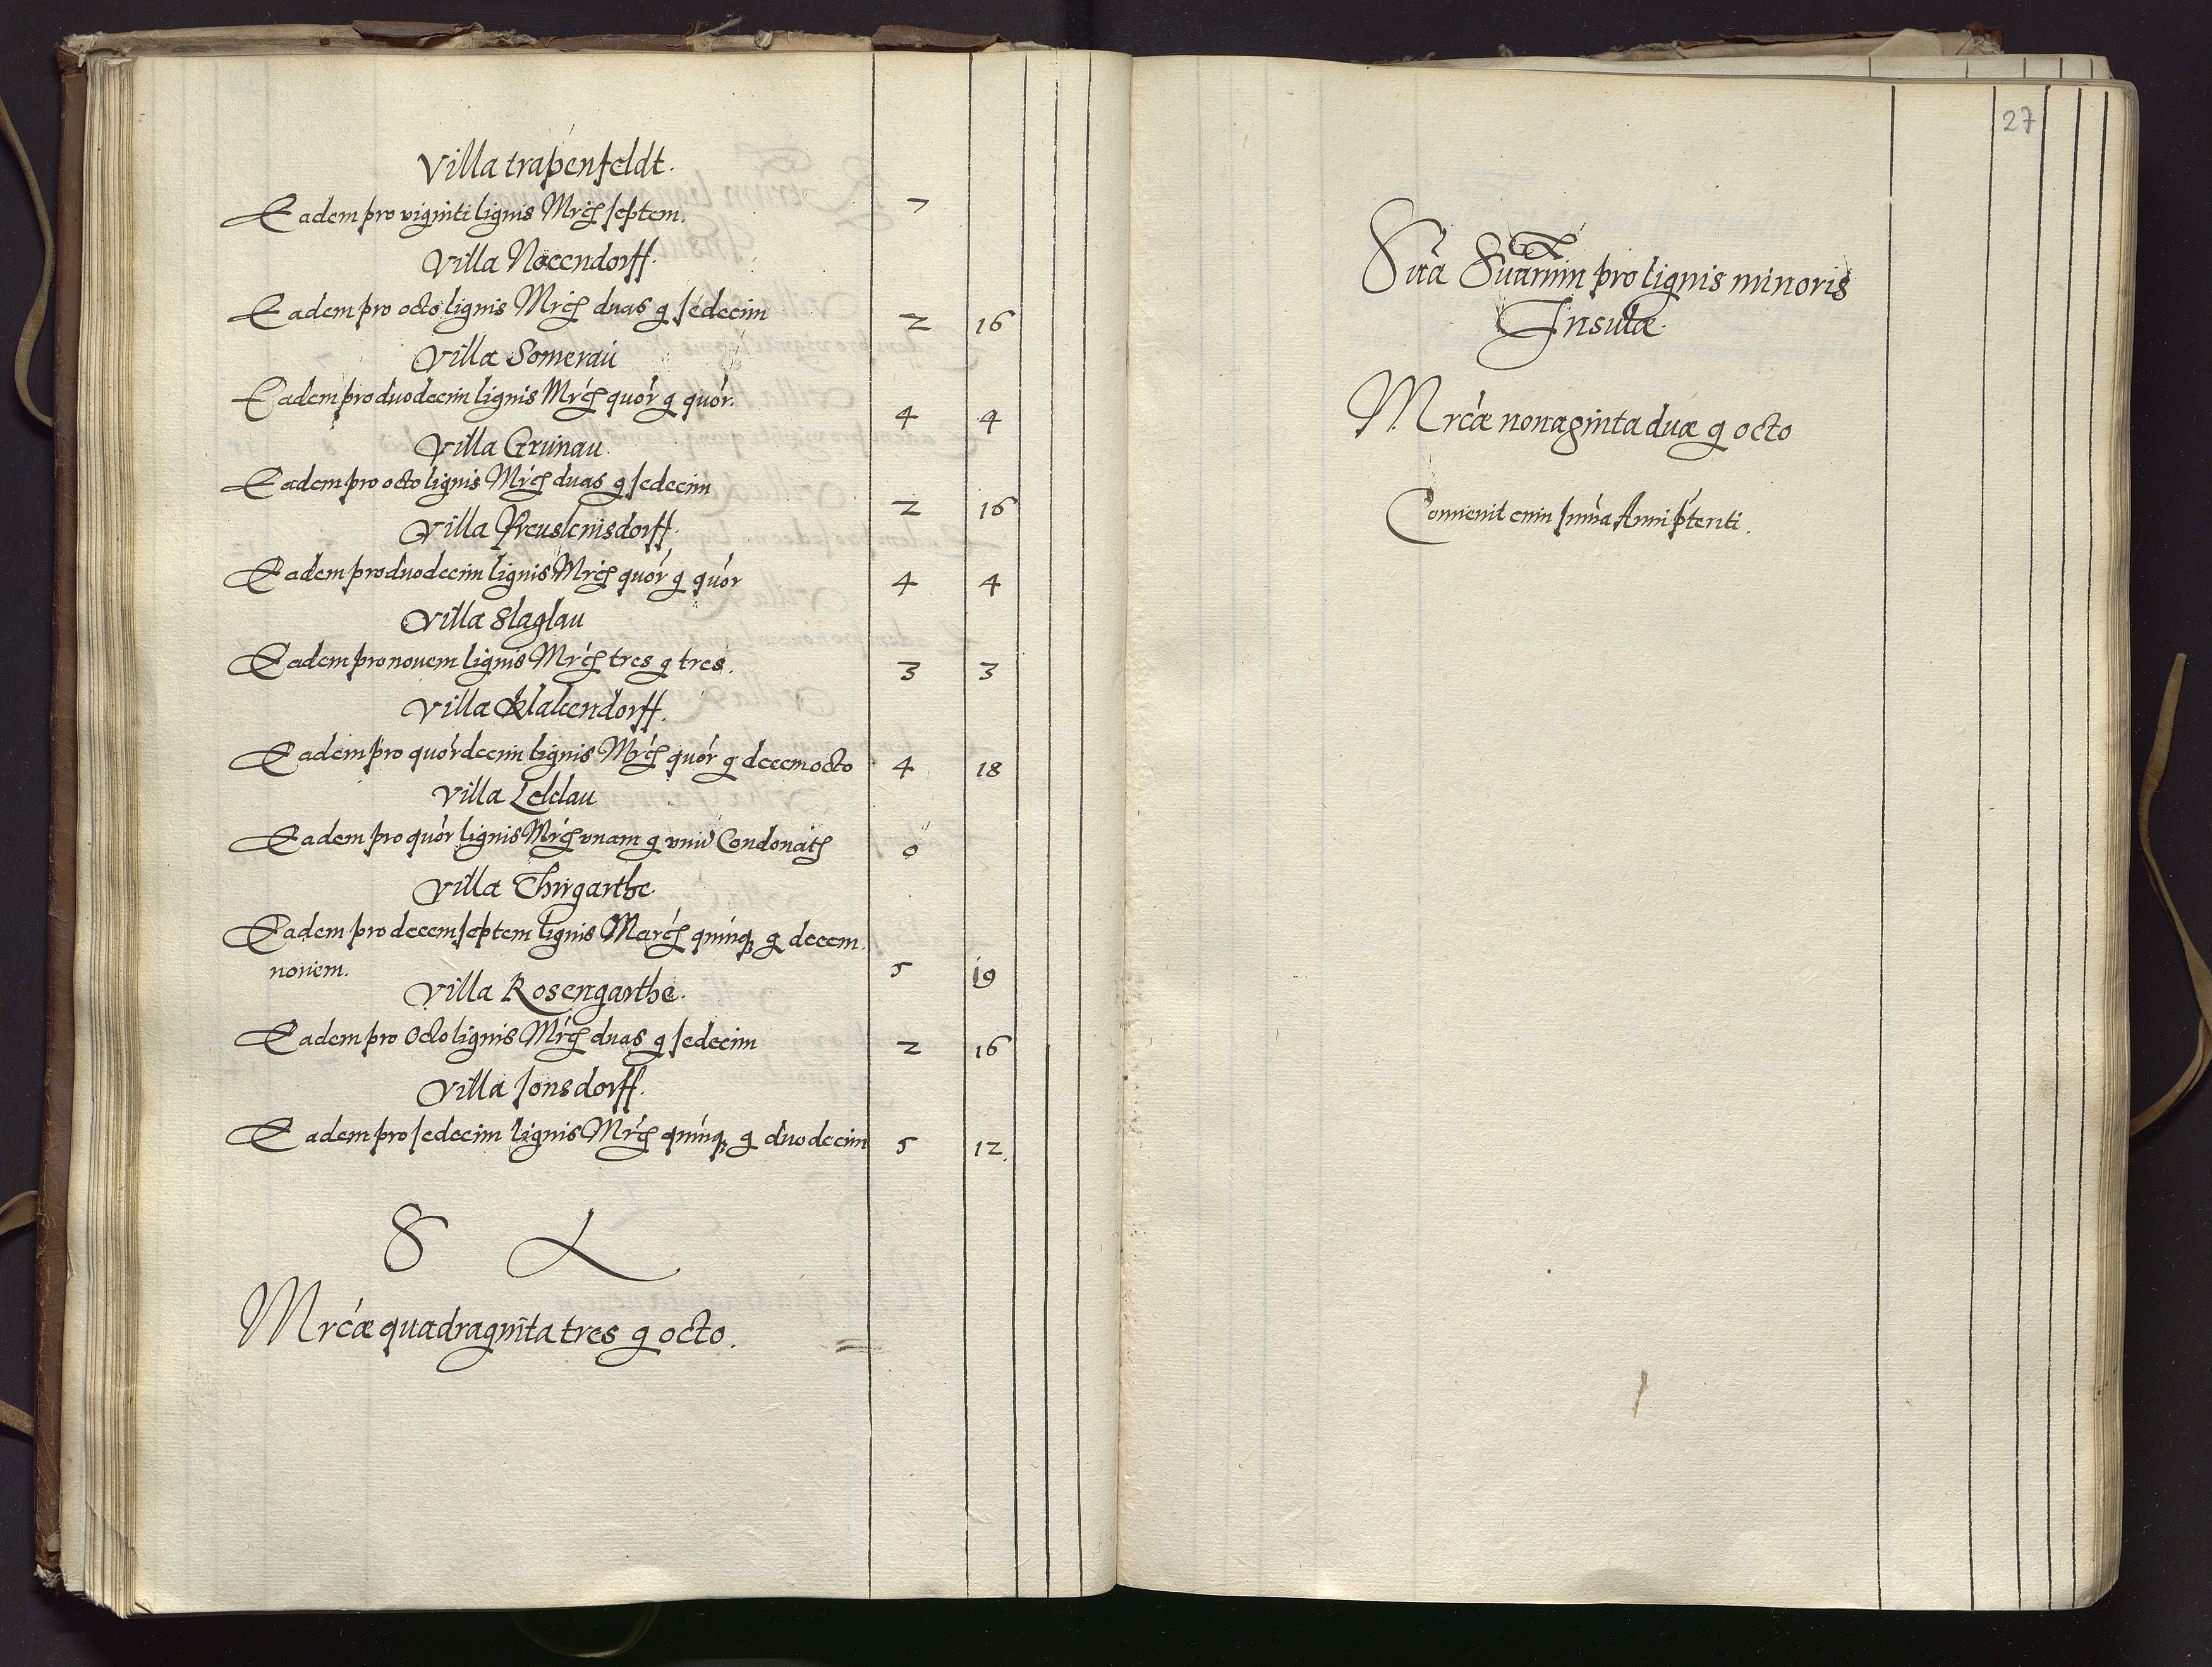 Villa trapenfeldt.
Eadem pro viginti lignis Mrcs septem. 7
Villa Nocendorff.
Eadem pro octo lignis Mrcs duas g sedecim 2 16
Villa Somerau
Eadem pro duodecim lignis Mrcs quor g quor. 4 4
Villa Grunau.
Eadem pro octo lignis Mrcs duas g sedecim 2 16
Villa
Eadem pro duodecim lignis Mrcs quor g quor 4 4
Villa Slaglau
Eadem pro novem lignis Mrcs tres g tres. 3 3
Villa Klakendorff.
Eadem pro quordecim lignis Mrcs quor g decemocto 4 18
Villa Leklau
Eadem pro quor lignis Mrcs vnam g vnū Condonats 0
Villa Thirgarthe.
Eadem pro decemseptem lignis Marcs quinq, g decem
novem. 5 19
Villa Rosengarthe.
Eadem pro Octo lignis Mrcs duas g sedecim 2 16
Villa Jonsdorff.
Eadem pro sedecim lignis Mrcs quinq, g duodecim 5 12.
S L
Mrcæ quadraginta tres g octo.
27
Sūa Suārum pro lignis minoris
Insulæ.
Mrcæ nonaginta duæ g octo
Convenit cum sūma Anni pteriti.